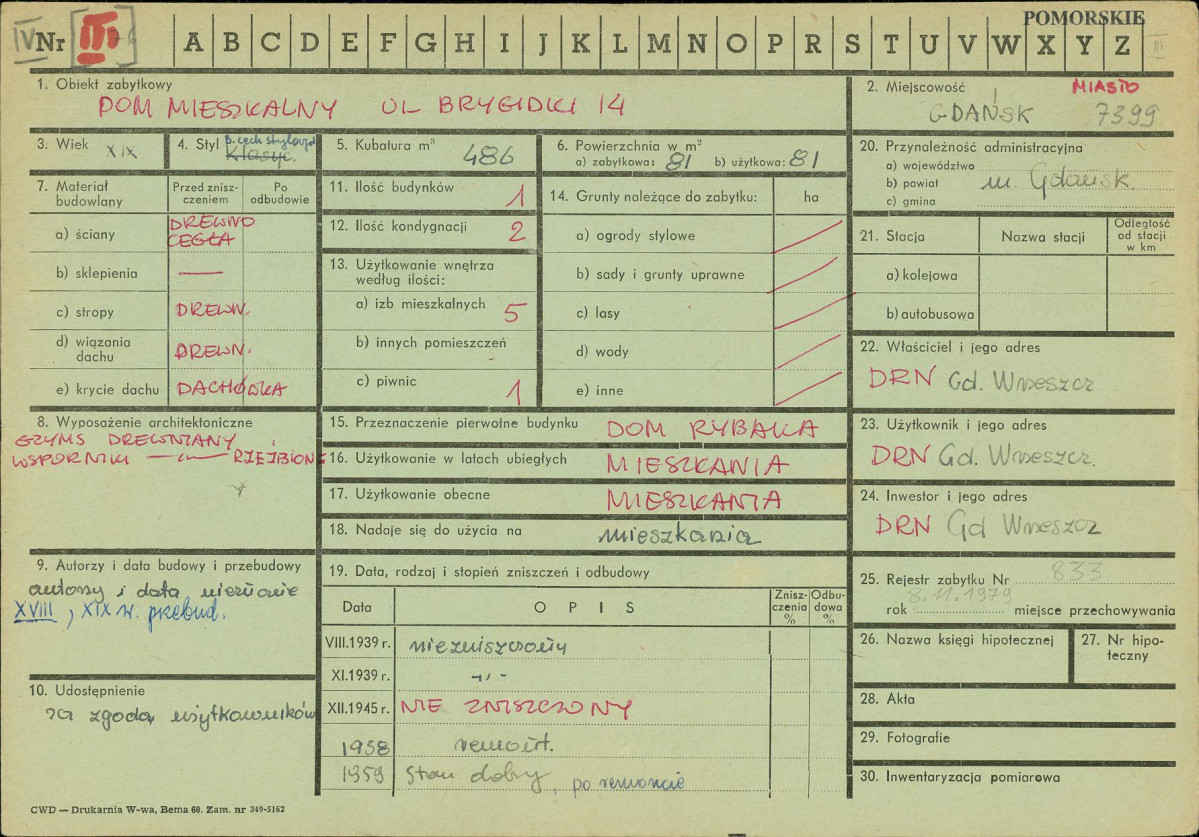 POMORSKIE
IV Nr III
A B C D E F G H I J K L M N O P R S T U V W X Y Z III
1. Obiekt zabytkowy
DOM MIESZKALNY UL BRYGIDKI 14
2. Miejscowość MIASTO
GDAŃSK 7399
3. Wiek XIX
4. Styl B. cech stylowych
Klasyc.
5. Kubatura m³ 486
6. Powierzchnia w m²
a) zabytkowa: 81 b) użytkowa: 81
20. Przynależność administracyjna
a) województwo
b) powiat m. Gdańsk.
c) gmina
7. Materiał budowlany
Przed zniszczeniem
Po odbudowie
a) ściany DREWNO
CEGŁA
b) sklepienia —
c) stropy DREWN.
d) wiązania dachu DREWN.
e) krycie dachu DACHÓWKA
11. Ilość budynków 1
12. Ilość kondygnacji 2
13. Użytkowanie wnętrza
według ilości:
a) izb mieszkalnych 5
b) innych pomieszczeń -
c) piwnic 1
14. Grunty należące do zabytku: ha
a) ogrody stylowe
b) sady i grunty uprawne
c) lasy
d) wody
e) inne
21. Stacja Nazwa stacji Odległość od stacji w km
a) kolejowa
b) autobusowa
22. Właściciel i jego adres
DRN Gd. Wrzeszcz
8. Wyposażenie architektoniczne
GZYMS DREWNIANY
WSPORNIKI —"— RZEŹBIONE
15. Przeznaczenie pierwotne budynku DOM RYBAKA
16. Użytkowanie w latach ubiegłych MIESZKANIA
17. Użytkowanie obecne MIESZKANIA
18. Nadaje się do użycia na mieszkania
23. Użytkownik i jego adres
DRN Gd. Wrzeszcz.
24. Inwestor i jego adres
DRN Gd Wrzeszcz
9. Autorzy i data budowy i przebudowy
autorzy i data nieznane
XVIII, XIX w. przebud.
19. Data, rodzaj i stopień zniszczeń i odbudowy
Data OPIS Zniszczenia % Odbudowa %
VIII.1939 r. niezniszczony
XI.1939 r. -"-
XII.1945 r. NIE ZNISZCZONY
1958 remont.
1959 Stan dobry, po remoncie
25. Rejestr zabytku Nr 833
rok 8.11.1979 miejsce przechowywania
26. Nazwa księgi hipotecznej
27. Nr hipoteczny
10. Udostępnienie
za zgodą użytkowników
28. Akta
29. Fotografie
30. Inwentaryzacja pomiarowa
CWD — Drukarnia W-wa, Bema 60. Zam. nr 349-5162